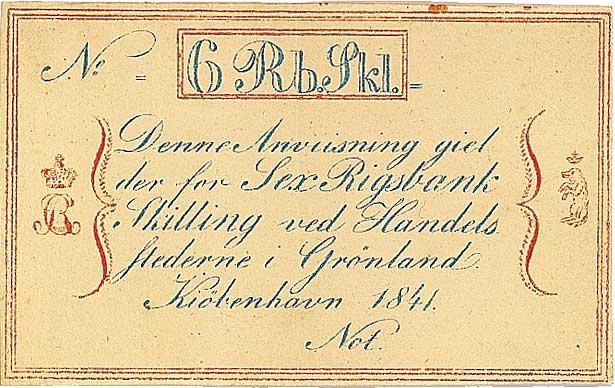 No = 6 Rb. Skl. =
Denne Anviisning giel
der for Sex Rigsbank
Skilling ved Handels
stederne i Grönland.
Kiöbenhavn 1841.
Not.